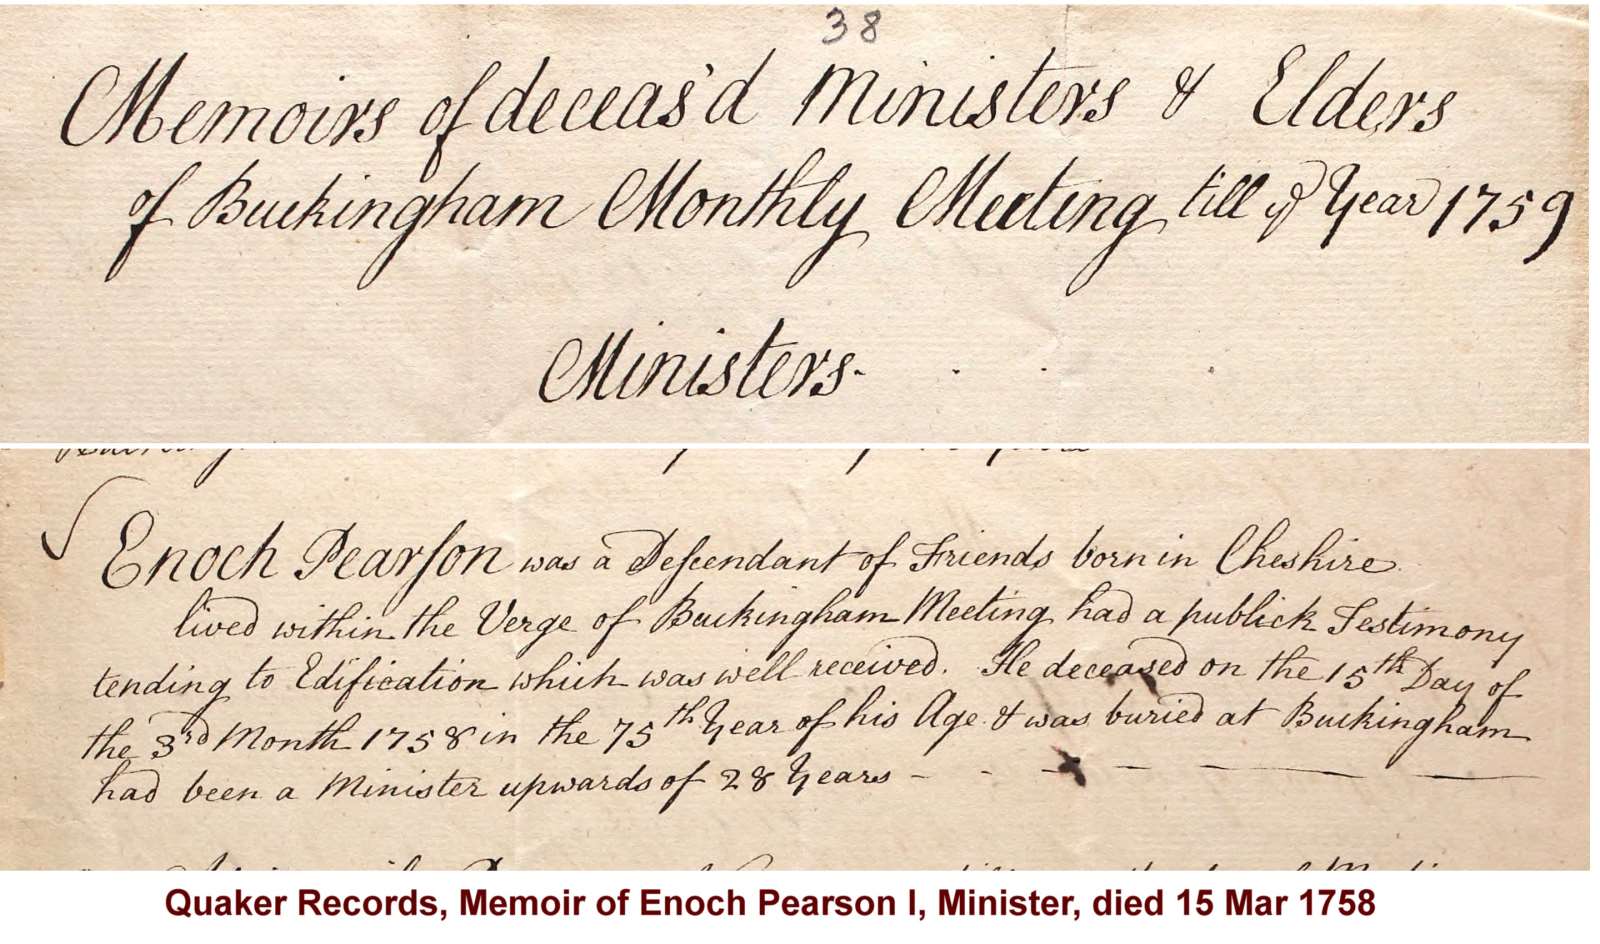 38
Memoirs of deceas'd Ministers & Elders
of Buckingham Monthly Meeting till ye Year 1759
Ministers.
Enoch Pearſon was a Deſcendant of Friends born in Cheshire
lived within the Verge of Buckingham Meeting had a publick Testimony
tending to Edification which was well received. He deceased on the 15th Day of
the 3rd Month 1758 in the 75th Year of his Age & was buried at Buckingham
had been a Minister upwards of 28 Years - - - - -
Quaker Records, Memoir of Enoch Pearson I, Minister, died 15 Mar 1758